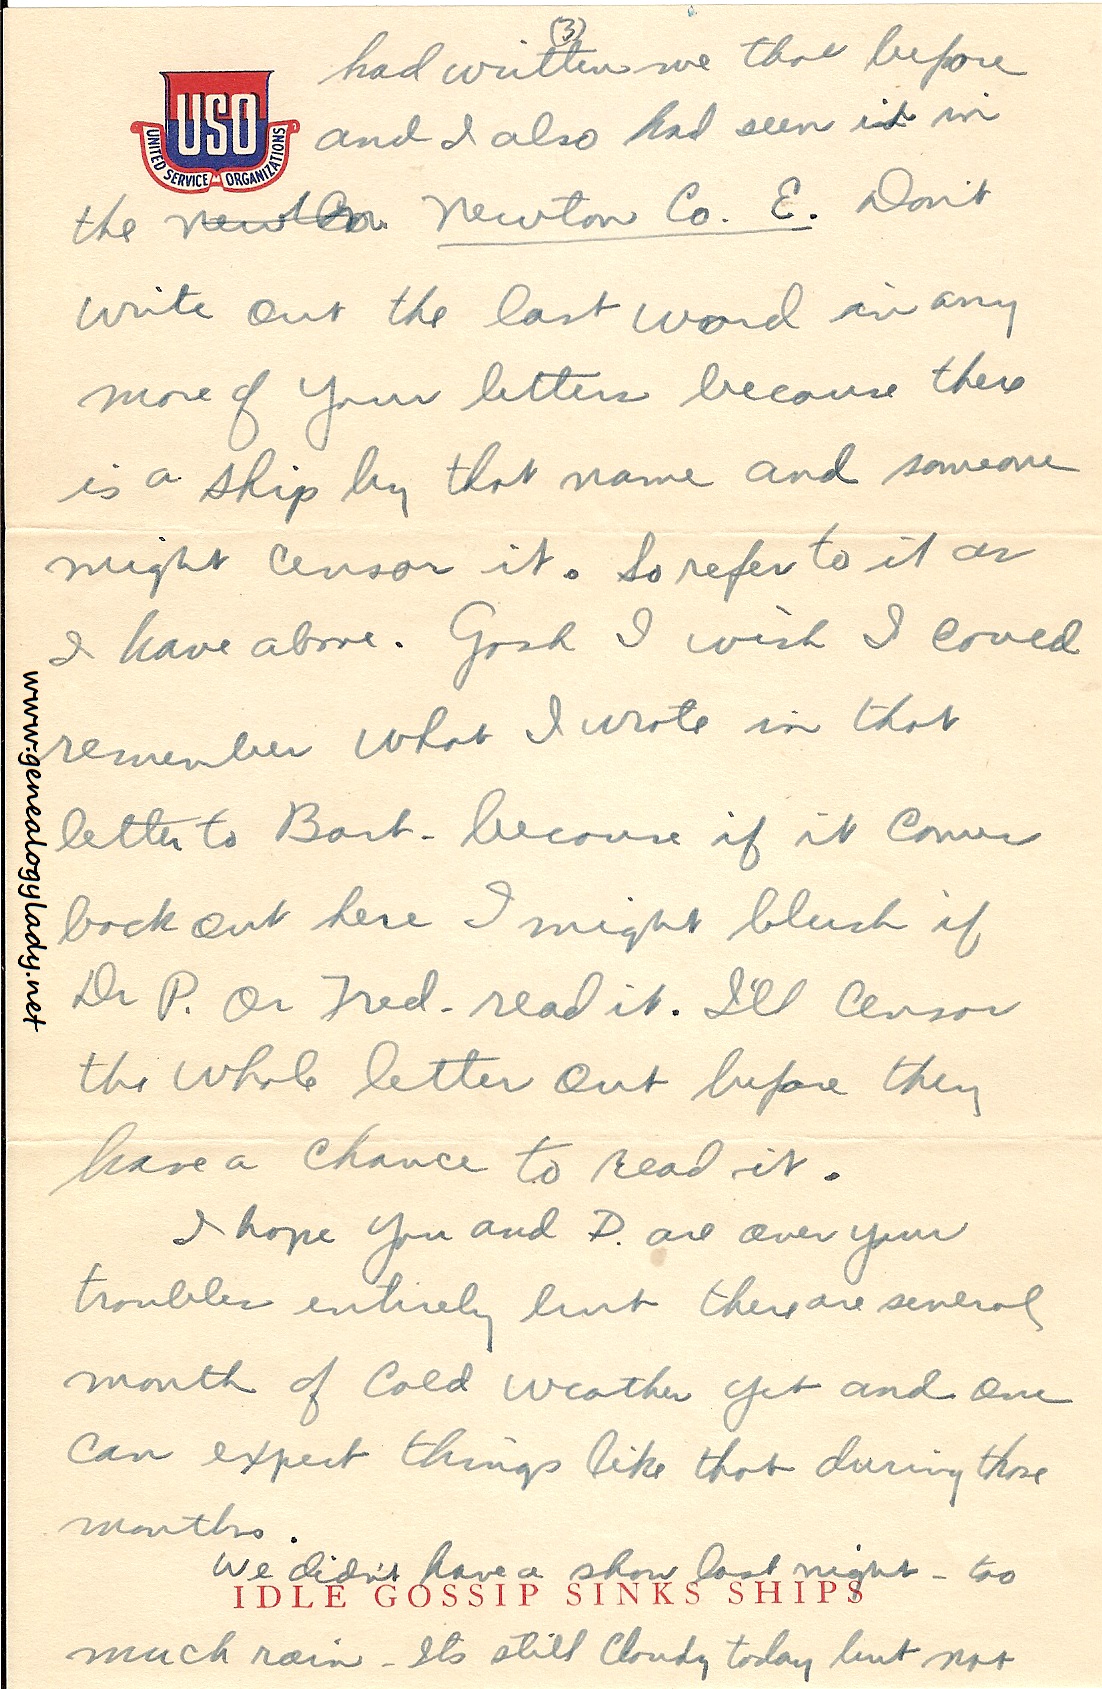 (3)
had written me that before
USO
UNITED SERVICE ORGANIZATIONS
and I also had seen it in
the Newton Co. E. Don't
write out the last word in any
more of your letters because there
is a ship by that name and someone
might censor it. So refer to it as
I have above. Gosh I wish I could
remember what I wrote in that
letter to Bart - because if it comes
back out here I might blush if
Dr P. or Fred - read it. I'll censor
the whole letter out before they
have a chance to read it.
I hope you and D. are over your
troubles entirely but there are several
month of cold weather yet and one
can expect things like that during those
months.
We didn't have a show last night - too
IDLE GOSSIP SINKS SHIPS
much rain - Its still cloudy today but not
www.genealogylady.net